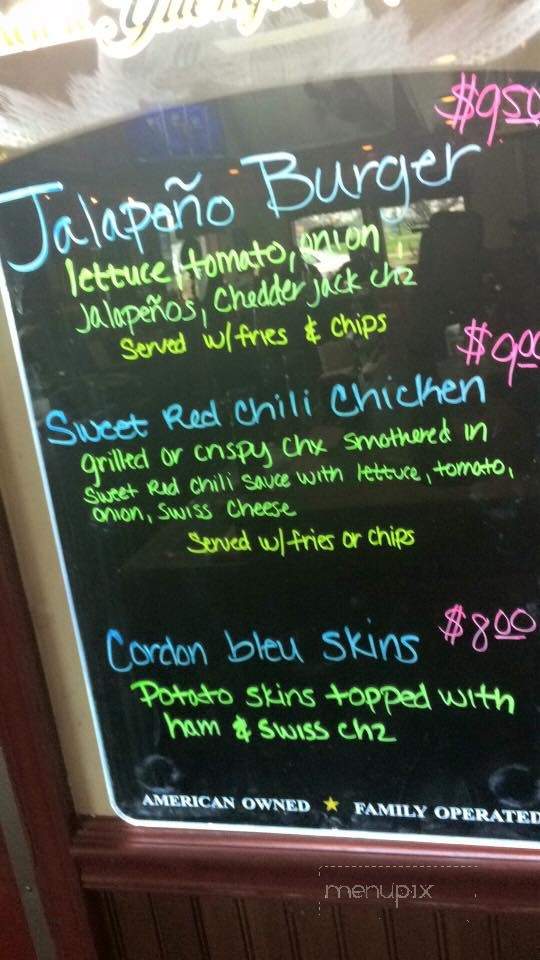 Yuengling
$9.50
Jalapeño Burger
lettuce, tomato, onion
jalapeños, Chedder jack chz
Served w/ fries & chips
$9.00
Sweet Red Chili Chicken
grilled or crispy chx smothered in
Sweet Red Chili Sauce with lettuce, tomato,
onion, Swiss Cheese
Served w/ fries or chips
Cordon bleu Skins $8.00
Potato skins topped with
ham & Swiss chz
AMERICAN OWNED ★ FAMILY OPERATED
menupix